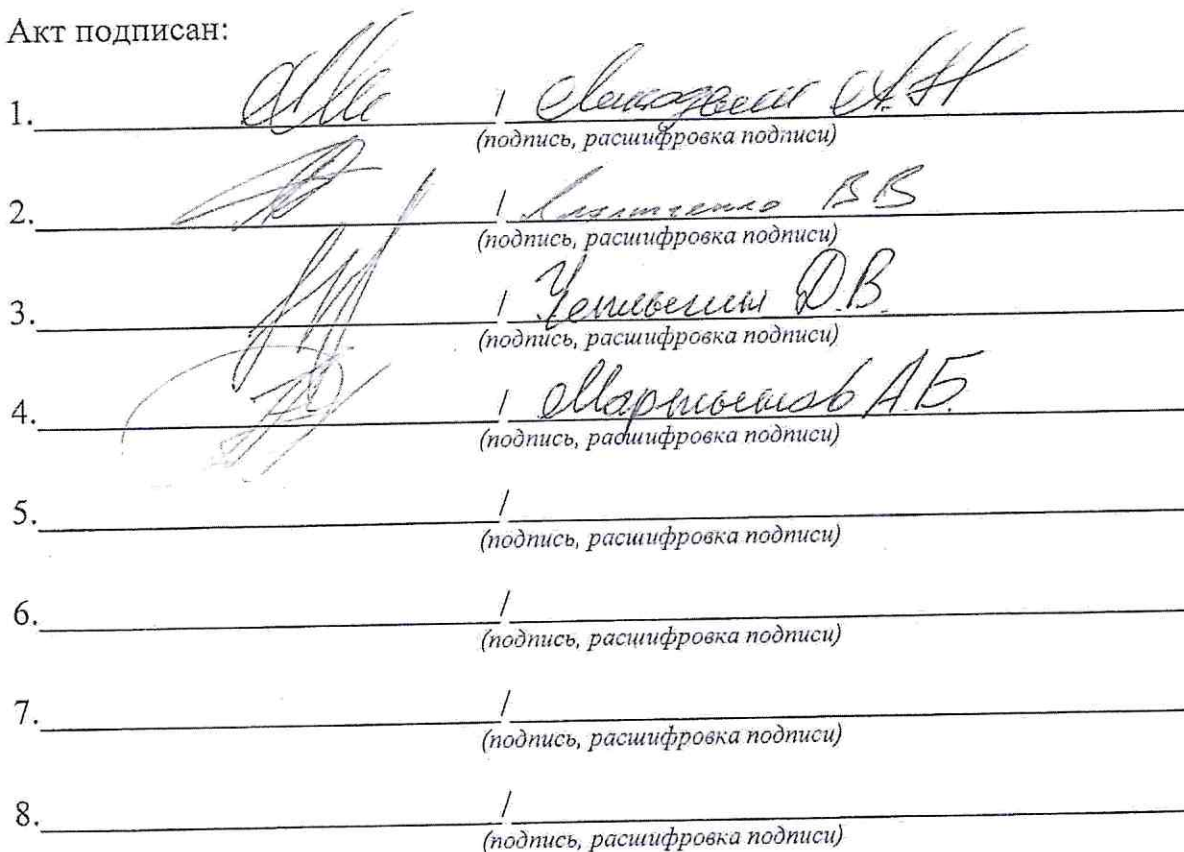 Акт подписан:
1. / А.Н
(подпись, расшифровка подписи)
2. / В В
(подпись, расшифровка подписи)
3. / Д.В.
(подпись, расшифровка подписи)
4. / Мартынов А.Б.
(подпись, расшифровка подписи)
5. /
(подпись, расшифровка подписи)
6. /
(подпись, расшифровка подписи)
7. /
(подпись, расшифровка подписи)
8. /
(подпись, расшифровка подписи)